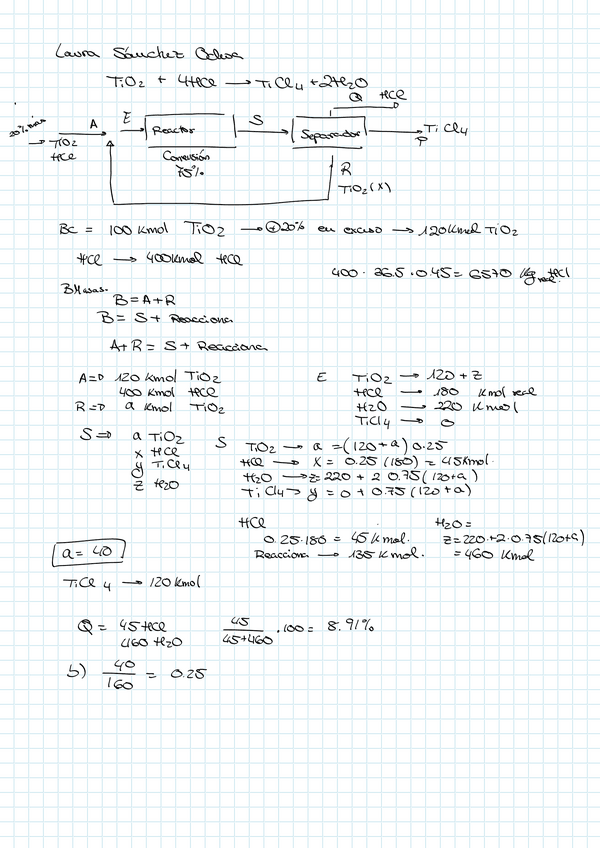 Laura Sánchez Ochoa
TiO2 + 4HCl → TiCl4 + 2H2O
Q HCl
20% más A E Reactor S Separador TiCl4
→ TiO2 P
HCl Conversión
75% R
TiO2 (x)
BC = 100 Kmol TiO2 → ⊕20% en exceso → 120Kmol TiO2
HCl → 400Kmol HCl
400 · 36.5 · 0.45 = 6570 Kg HCl real
BMasas.
B = A+R
B = S + Reacciona
A+R = S + Reacciona
A⇒ 120 Kmol TiO2
400 Kmol HCl
R ⇒ a Kmol TiO2
E TiO2 → 120 + z
HCl → 180 Kmol real
H2O → 220 Kmol
TiCl4 → 0
S ⇒ a TiO2
x HCl
y TiCl4
z H2O
S TiO2 → a = (120+a) 0.25
HCl → x = 0.25 (180) = 45Kmol.
H2O → z= 220 + 2 0.75(120+a)
TiCl4 → y = 0 + 0.75 (120+a)
HCl
0.25·180 = 45 Kmol.
Reacciona → 135 Kmol.
H2O =
z=220+2·0.75(120+a)
= 460 Kmol
a = 40
TiCl4 → 120 Kmol
Q = 45 HCl
460 H2O
45/45+460 · 100 = 8.91%
b) 40/160 = 0.25